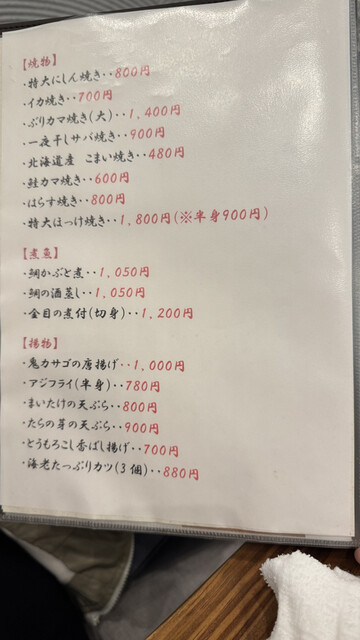 【焼物】
・特大にしん焼き・・800円
・イカ焼き・・700円
・ぶりカマ焼き(大)・・1,400円
・一夜干しサバ焼き・・900円
・北海道産 こまい焼き・・480円
・鮭カマ焼き・・600円
・はらす焼き・・800円
・特大ほっけ焼き・・1,800円(※半身900円)
【煮蒸】
・鯛かぶと煮・・1,050円
・鯛の酒蒸し・・1,050円
・金目の煮付(切身)・・1,200円
【揚物】
・鬼カサゴの唐揚げ・・1,000円
・アジフライ(半身)・・780円
・まいたけの天ぷら・・800円
・たらの芽の天ぷら・・900円
・とうもろこし香ばし揚げ・・700円
・海老たっぷりカツ(3個)・・880円